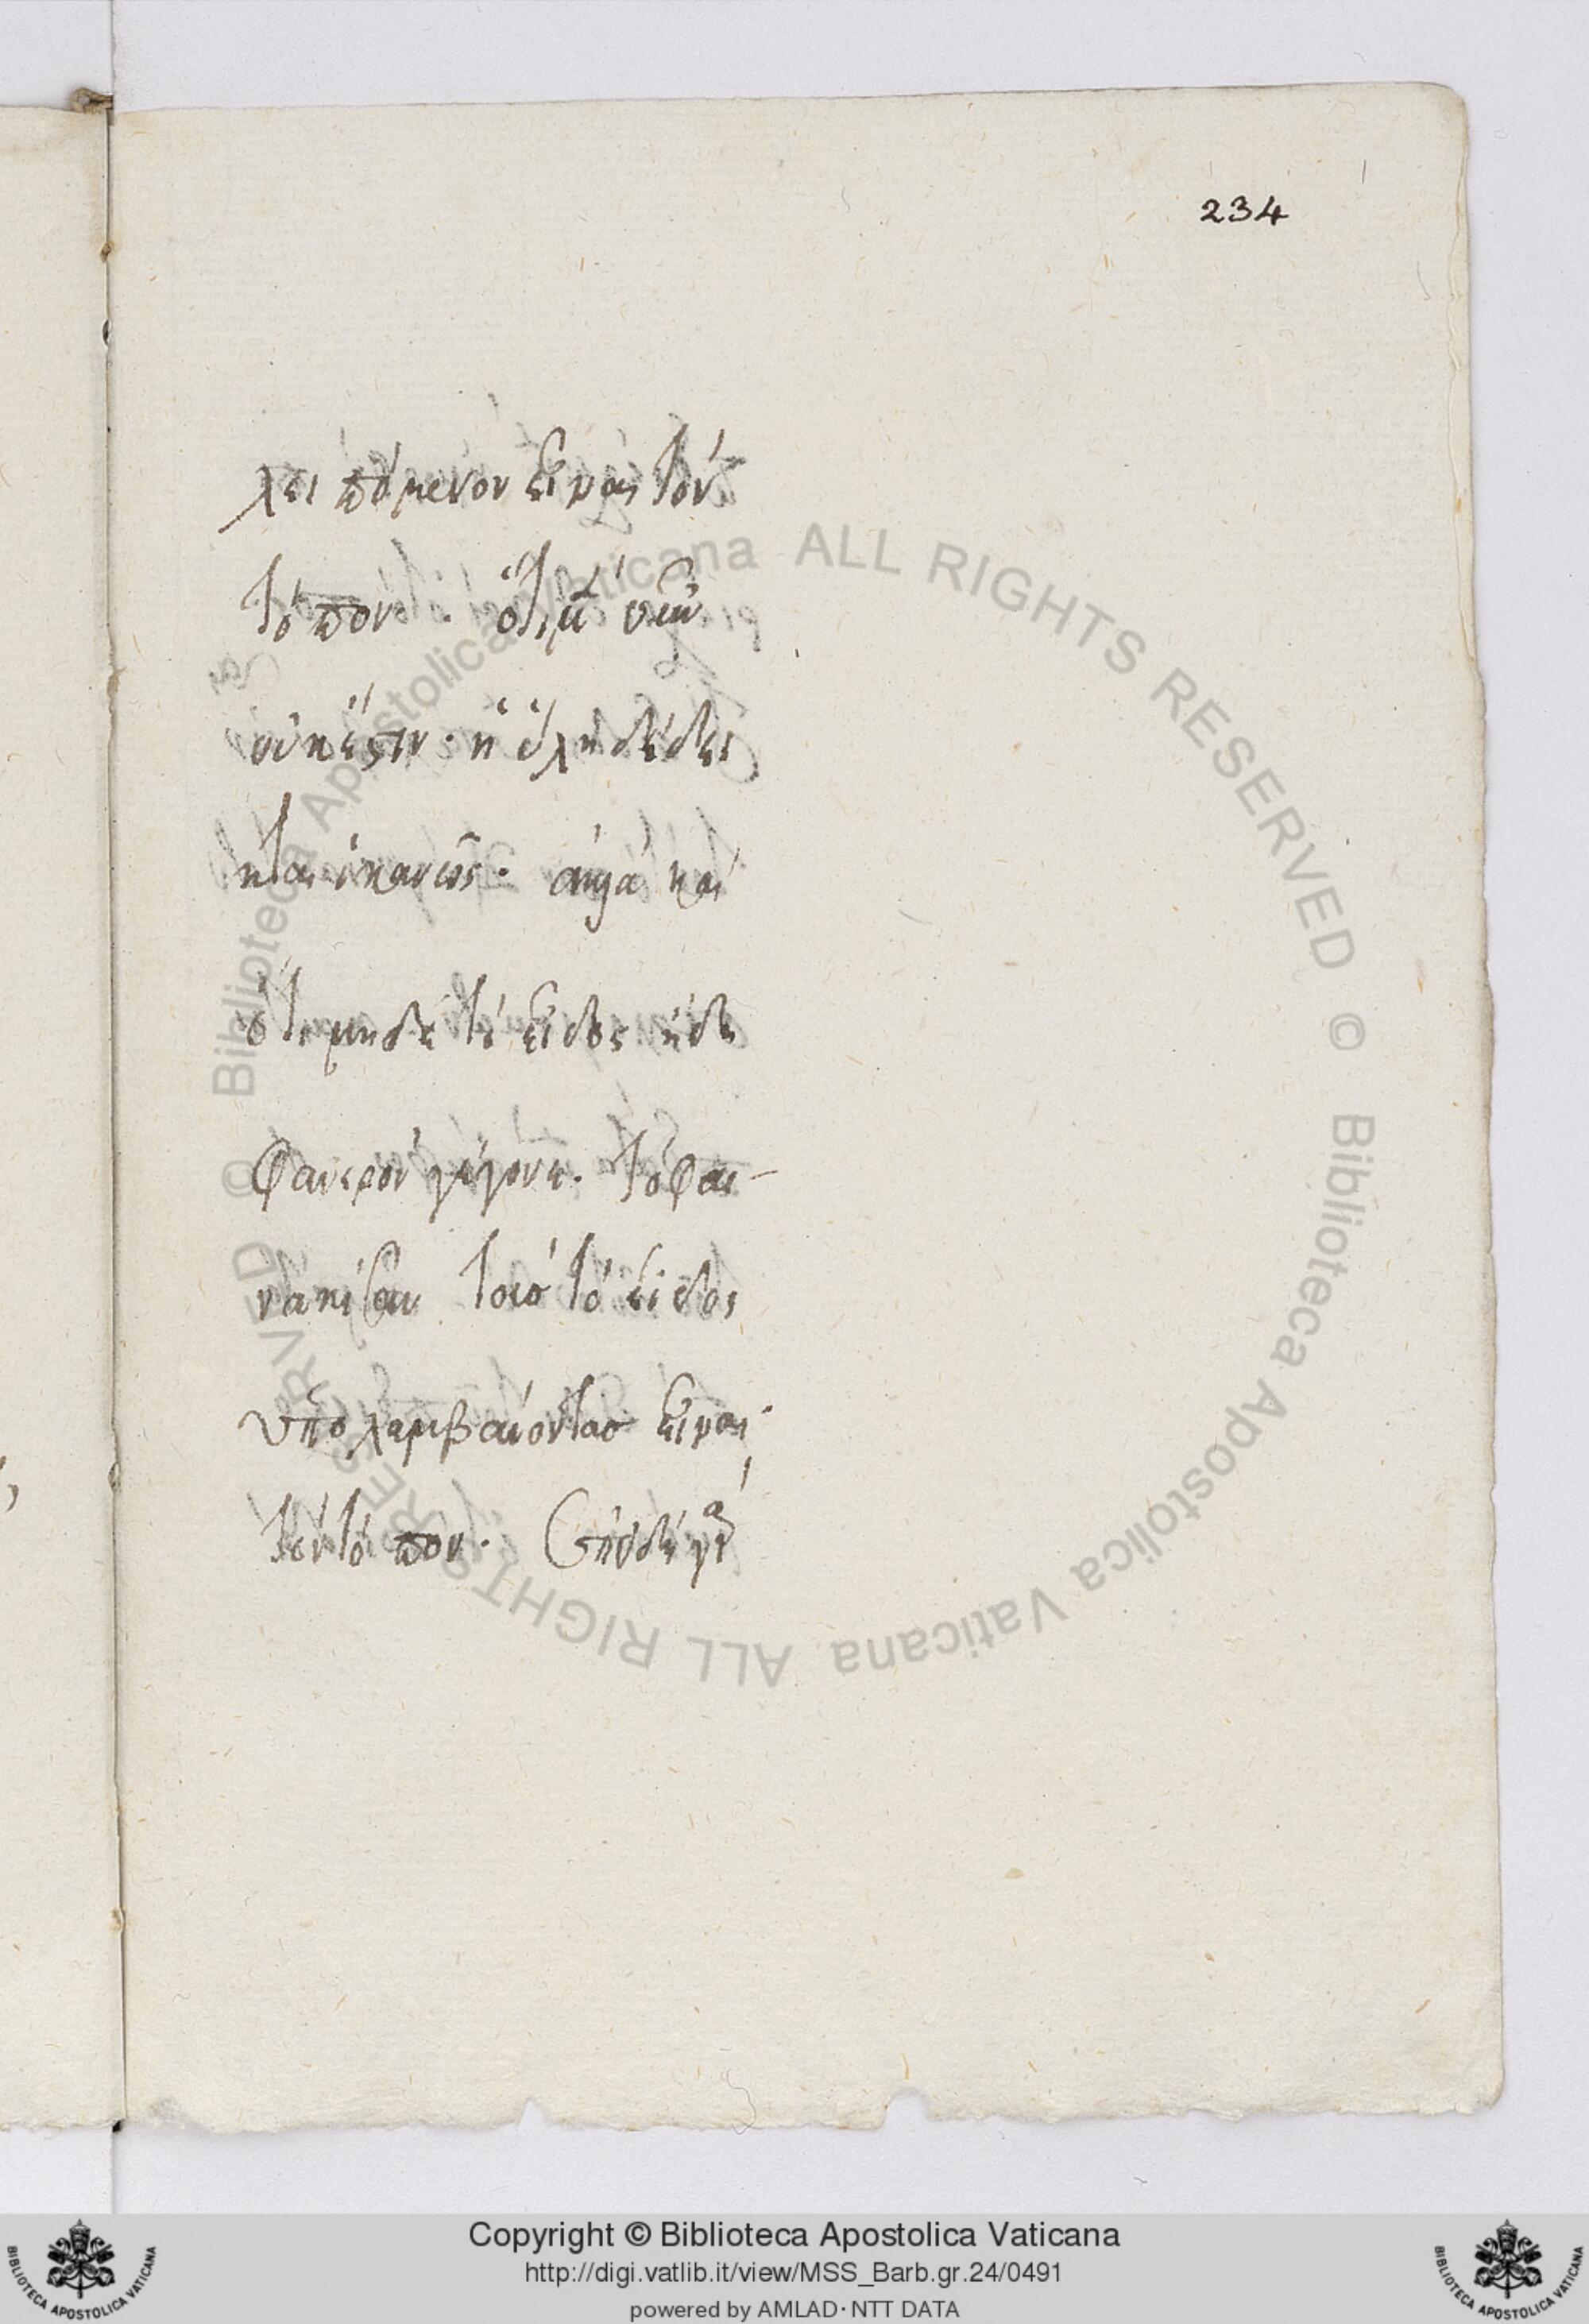 234
λειπόμενον εἶναι τὸν
τόπον. ὅτι μὲν οὖν
οὐκ ἔστιν ἡ ὕλη δέδει
κται ἱκανῶς. ἀλλὰ καὶ
ὅτι μηδὲ τὸ εἶδος ἤδη
φανερὸν γέγονε. τὸ φαι-
τὸ εἶδος
ὑπολαμβάνοντας εἶναι
τὸν τόπον.
Copyright © Biblioteca Apostolica Vaticana
http://digi.vatlib.it/view/MSS_Barb.gr.24/0491
powered by AMLAD·NTT DATA
© Biblioteca Apostolica Vaticana ALL RIGHTS RESERVED © Biblioteca Apostolica Vaticana ALL RIGHTS RESERVED
BIBLIOTECA APOSTOLICA VATICANA
BIBLIOTECA APOSTOLICA VATICANA